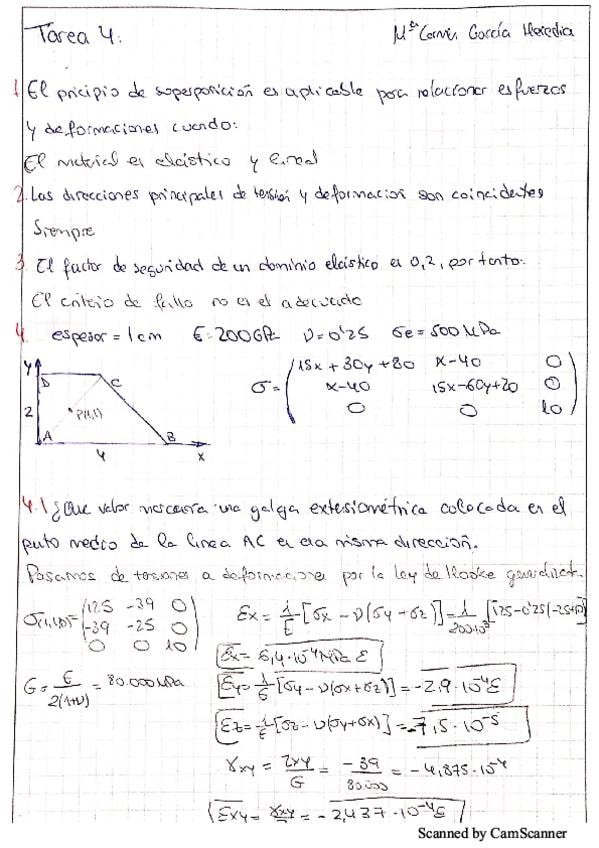 Tarea 4.
Mª Carmen García Heredia
1 El pricipio de superposición es aplicable para relacionar esfuerzos
y deformaciones cuando:
El material es elástico y lineal
2. Las direcciones principales de tensión y deformación son coincidentes
Siempre
3. El factor de seguridad de un dominio elástico es 0,2, por tanto:
El criterio de fallo no es el adecuado
4. espesor = 1 cm E = 200 GPa ν = 0'25 σe = 500 MPa
Y
D C
2 P(1,1)
A B
4 x
σ = ( 15x + 30y + 80 x - 40 0
x - 40 15x - 60y + 20 0
0 0 10 )
4.1 ¿Que valor marcaría una galga extesiométrica colocada en el
puto medio de la linea AC en esa misma dirección.
Pasamos de tensiones a deformaciones por la ley de Hooke
σ(1,1) = ( 125 -39 0
-39 -25 0
0 0 10 )
εx = 1/E [σx - ν(σy + σz)] = 1/200·10³ [125 - 0'25(-25+10)]
εx = 6,4·10⁻⁴
G = E/2(1+ν) = 80.000 MPa
εy = 1/E [σy - ν(σx + σz)] = -2,9·10⁻⁴ε
εz = 1/E [σz - ν(σy + σx)] = -7,5·10⁻⁵
γxy = τxy/G = -39/80.000 = -4,875·10⁻⁴
εxy = γxy/2 = -2,437·10⁻⁴ε
Scanned by CamScanner